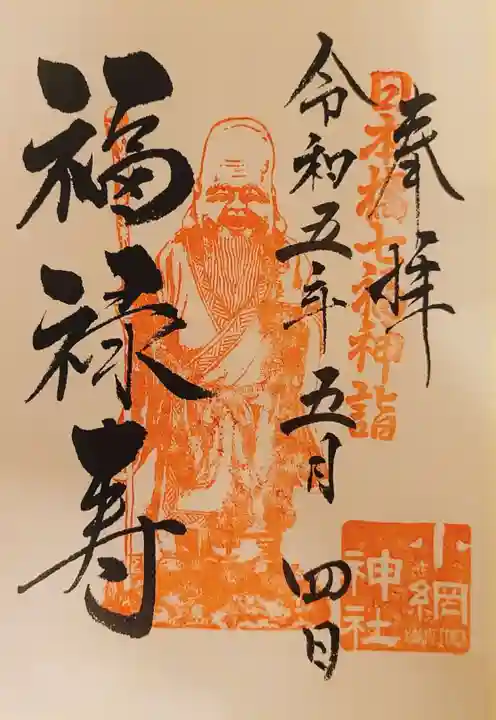 奉拝
日本橋七福神詣
令和五年五月四日
福禄寿
小網
神社